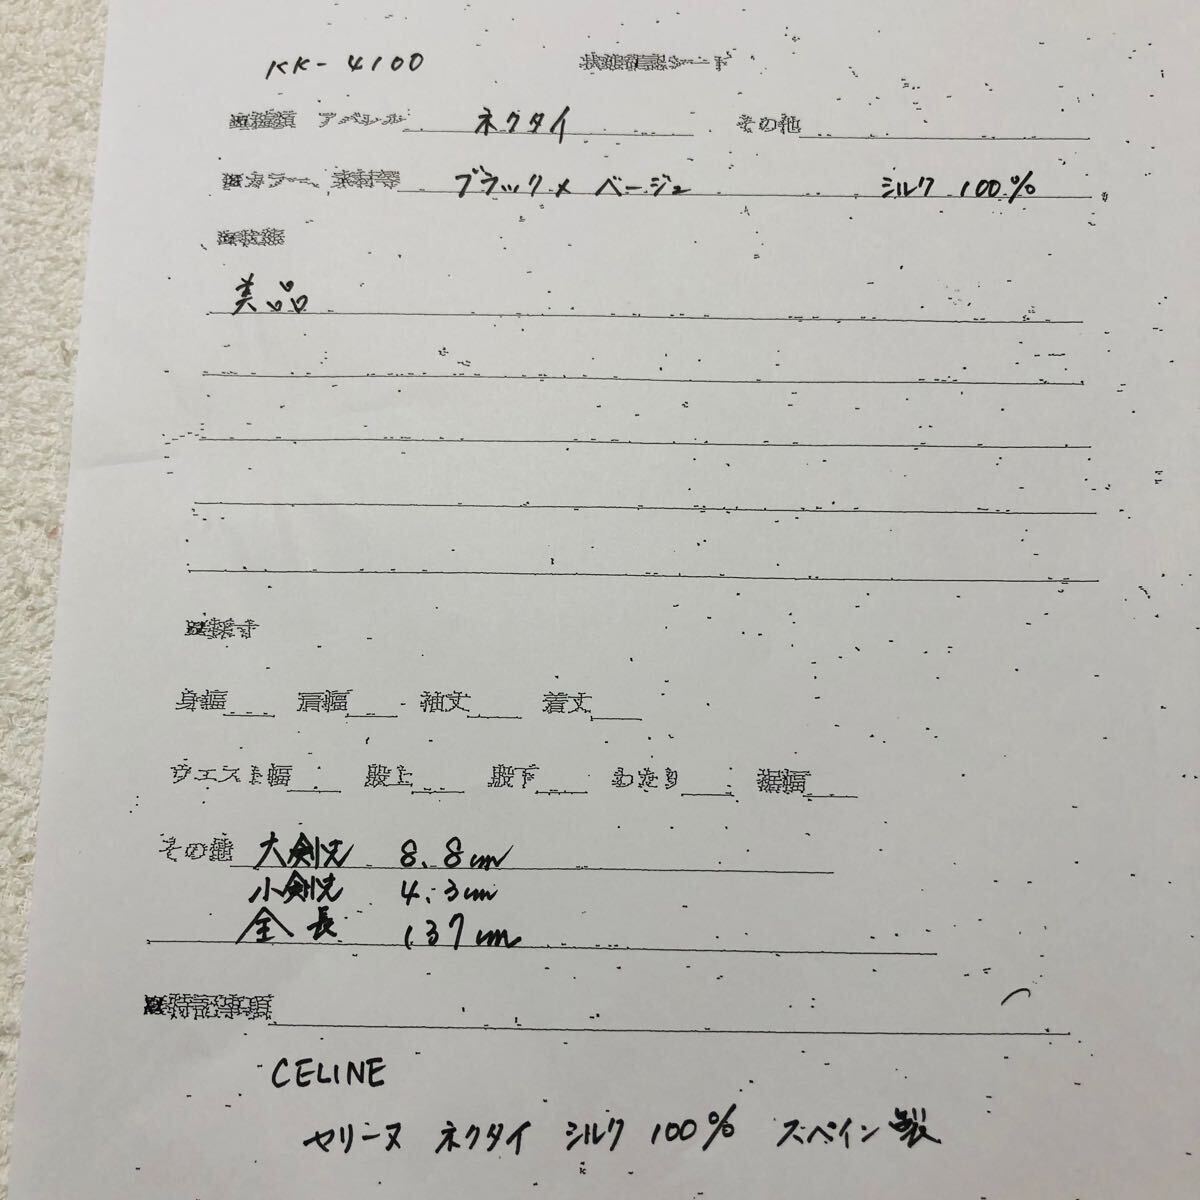 KK-4100 状態確認シート
アパレル ネクタイ その他
カラー、素材等 ブラック× ベージュ シルク 100%
状態
美品
採寸
身幅 肩幅 袖丈 着丈
ウエスト幅 股上 股下 わたり 裾幅
その他 大剣先 8.8cm
小剣先 4.3cm
全長 137cm
特記事項
CELINE
セリーヌ ネクタイ シルク 100% スペイン製